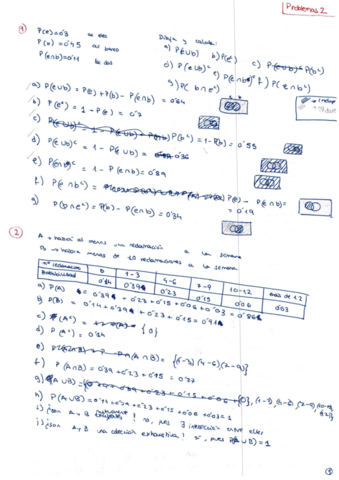 Problemas 2
① P(e)=0'3
Dibuja y calcula:
P(b)=0'45
a) P(e∪b) b) P(eᶜ) c) P(bᶜ)
P(e∩b)=0'11
d) P(e∪b)ᶜ e) P(e∩b)ᶜ f) P(e∩bᶜ)
g) P(b∩eᶜ)
a) P(e∪b) = P(e)+P(b)-P(e∩b) = 0'64
b) P(eᶜ) = 1-P(e) = 0'7
c) P(bᶜ) = 1-P(b) = 0'55
d) P(e∪b)ᶜ = 1-P(e∪b) = 0'36
e) P(e∩b)ᶜ = 1-P(e∩b) = 0'89
f) P(e∩bᶜ) = P(e) - P(e∩b) = 0'19
g) P(b∩eᶜ) = P(b)-P(e∩b) = 0'34
②
A → habrá al menos una reclamación a la semana
B → habrá menos de 10 reclamaciones a la semana
nº reclamaciones 0 1-3 4-6 7-9 10-12 más de 12
Probabilidad 0'14 0'39 0'23 0'15 0'06 0'03
a) P(A) = 0'39 + 0'23 + 0'15 + 0'06 + 0'03 = 0'86
b) P(B) = 0'14 + 0'39 + 0'23 + 0'15 = 0'91
c) (Aᶜ) = {0}
d) P(Aᶜ)
e) (A∩B) = {(1-3), (4-6), (7-9)}
f) P(A∩B) = 0'39 + 0'23 + 0'15 = 0'77
g) (A∪B) =
h) P(A∪B) = 0'14 + 0'39 + 0'23 + 0'15 + 0'06 + 0'03 = 1
i) ¿son A y B mutuamente excluyentes? no, pues ∃ intersección entre ellos
j) ¿son A y B una colección exhaustiva? sí, pues P(A∪B) = 1